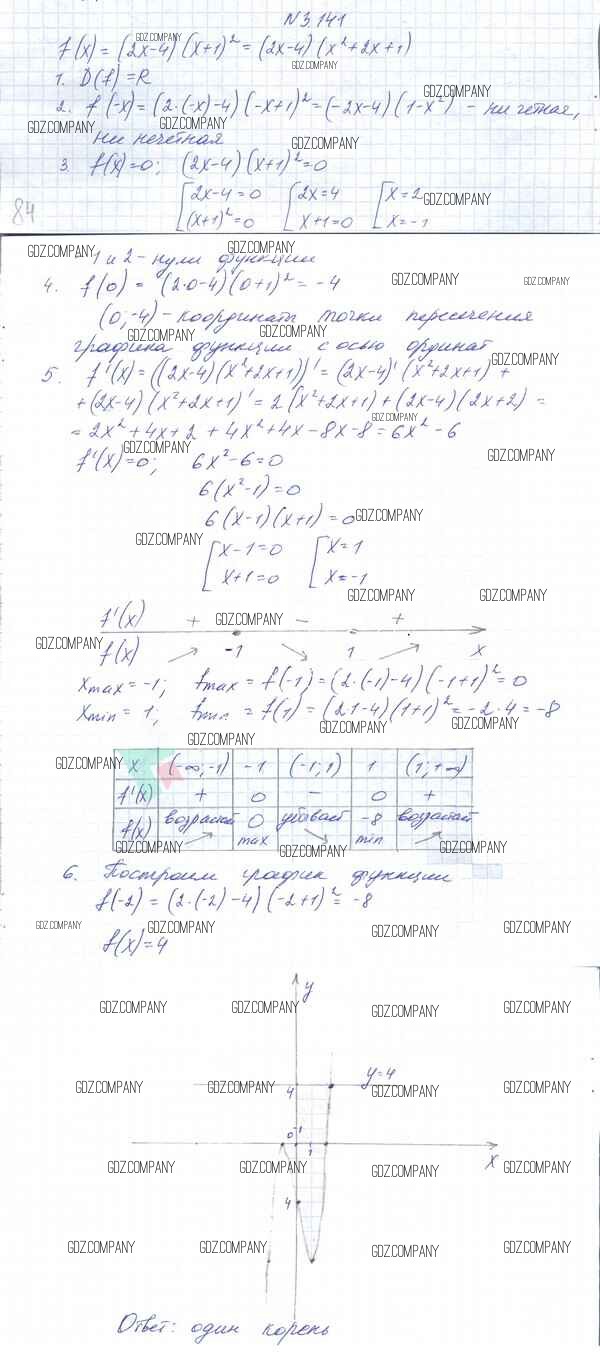 N 3.141
f(x) = (2x-4)(x+1)² = (2x-4)(x²+2x+1)
1. D(f)=R
2. f(-x)=(2·(-x)-4)(-x+1)²=(-2x-4)(1-x²) - ни четная,
ни нечетная
3. f(x)=0; (2x-4)(x+1)²=0
[2x-4=0 [2x=4 [x=2
[(x+1)²=0 [x+1=0 [x=-1
84
-1 и 2 - нули функции
4. f(0) = (2·0-4)(0+1)² = -4
(0;-4) - координаты точки пересечения
графика функции с осью ординат
5. f'(x) = ((2x-4)(x²+2x+1))' = (2x-4)'(x²+2x+1) +
+(2x-4)(x²+2x+1)' = 2(x²+2x+1)+(2x-4)(2x+2) =
= 2x²+4x+2+4x²+4x-8x-8=6x²-6
f'(x)=0; 6x²-6=0
6(x²-1)=0
6(x-1)(x+1)=0
[x-1=0 [x=1
[x+1=0 [x=-1
f'(x) + - +
f(x) -1 1 x
xmax=-1; fmax = f(-1) = (2·(-1)-4)(-1+1)²=0
xmin=1; fmin = f(1) = (2·1-4)(1+1)²=-2·4=-8
x (-∞;-1) -1 (-1;1) 1 (1;+∞)
f'(x) + 0 - 0 +
f(x) возрастает 0 убывает -8 возрастает
max min
6. Построим график функции
f(-2) = (2·(-2)-4)(-2+1)²= -8
f(x)=4
y
y=4
4
1
0
1
x
4
Ответ: один корень
GDZ.COMPANY